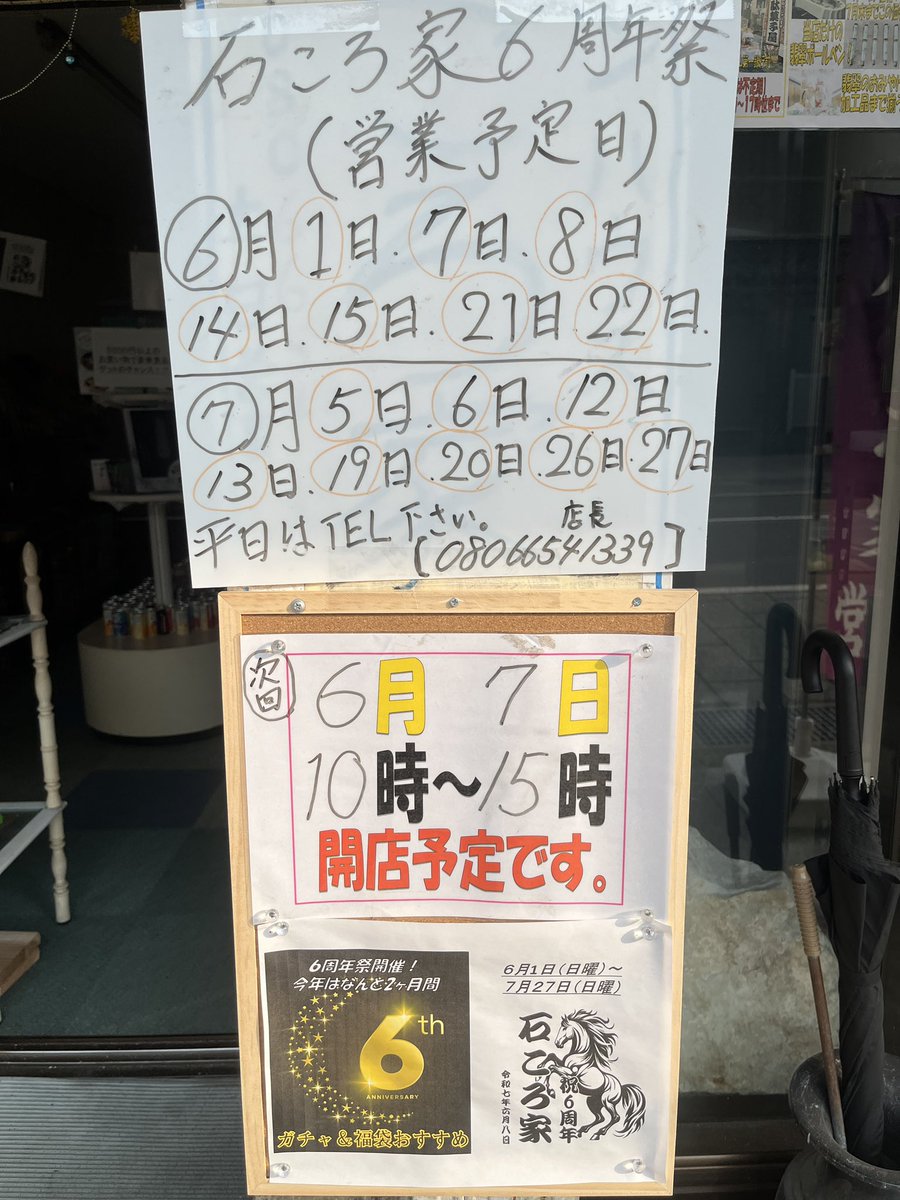 石ころ家6周年祭
(営業予定日)
6月1日.7日.8日
14日.15日.21日22日.
7月5日.6日.12日
13日.19日.20日.26日.27日
平日はTEL下さい。
店長
[08066541339]
次回
6月7日
10時〜15時
開店予定です。
6周年祭開催！
今年はなんと2ヶ月間
6th
ANNIVERSARY
ガチャ&福袋おすすめ
6月1日(日曜)〜
7月27日(日曜)
石ころ家
祝6周年
令和七年六月八日
当店だけの
翡翠ボールペン